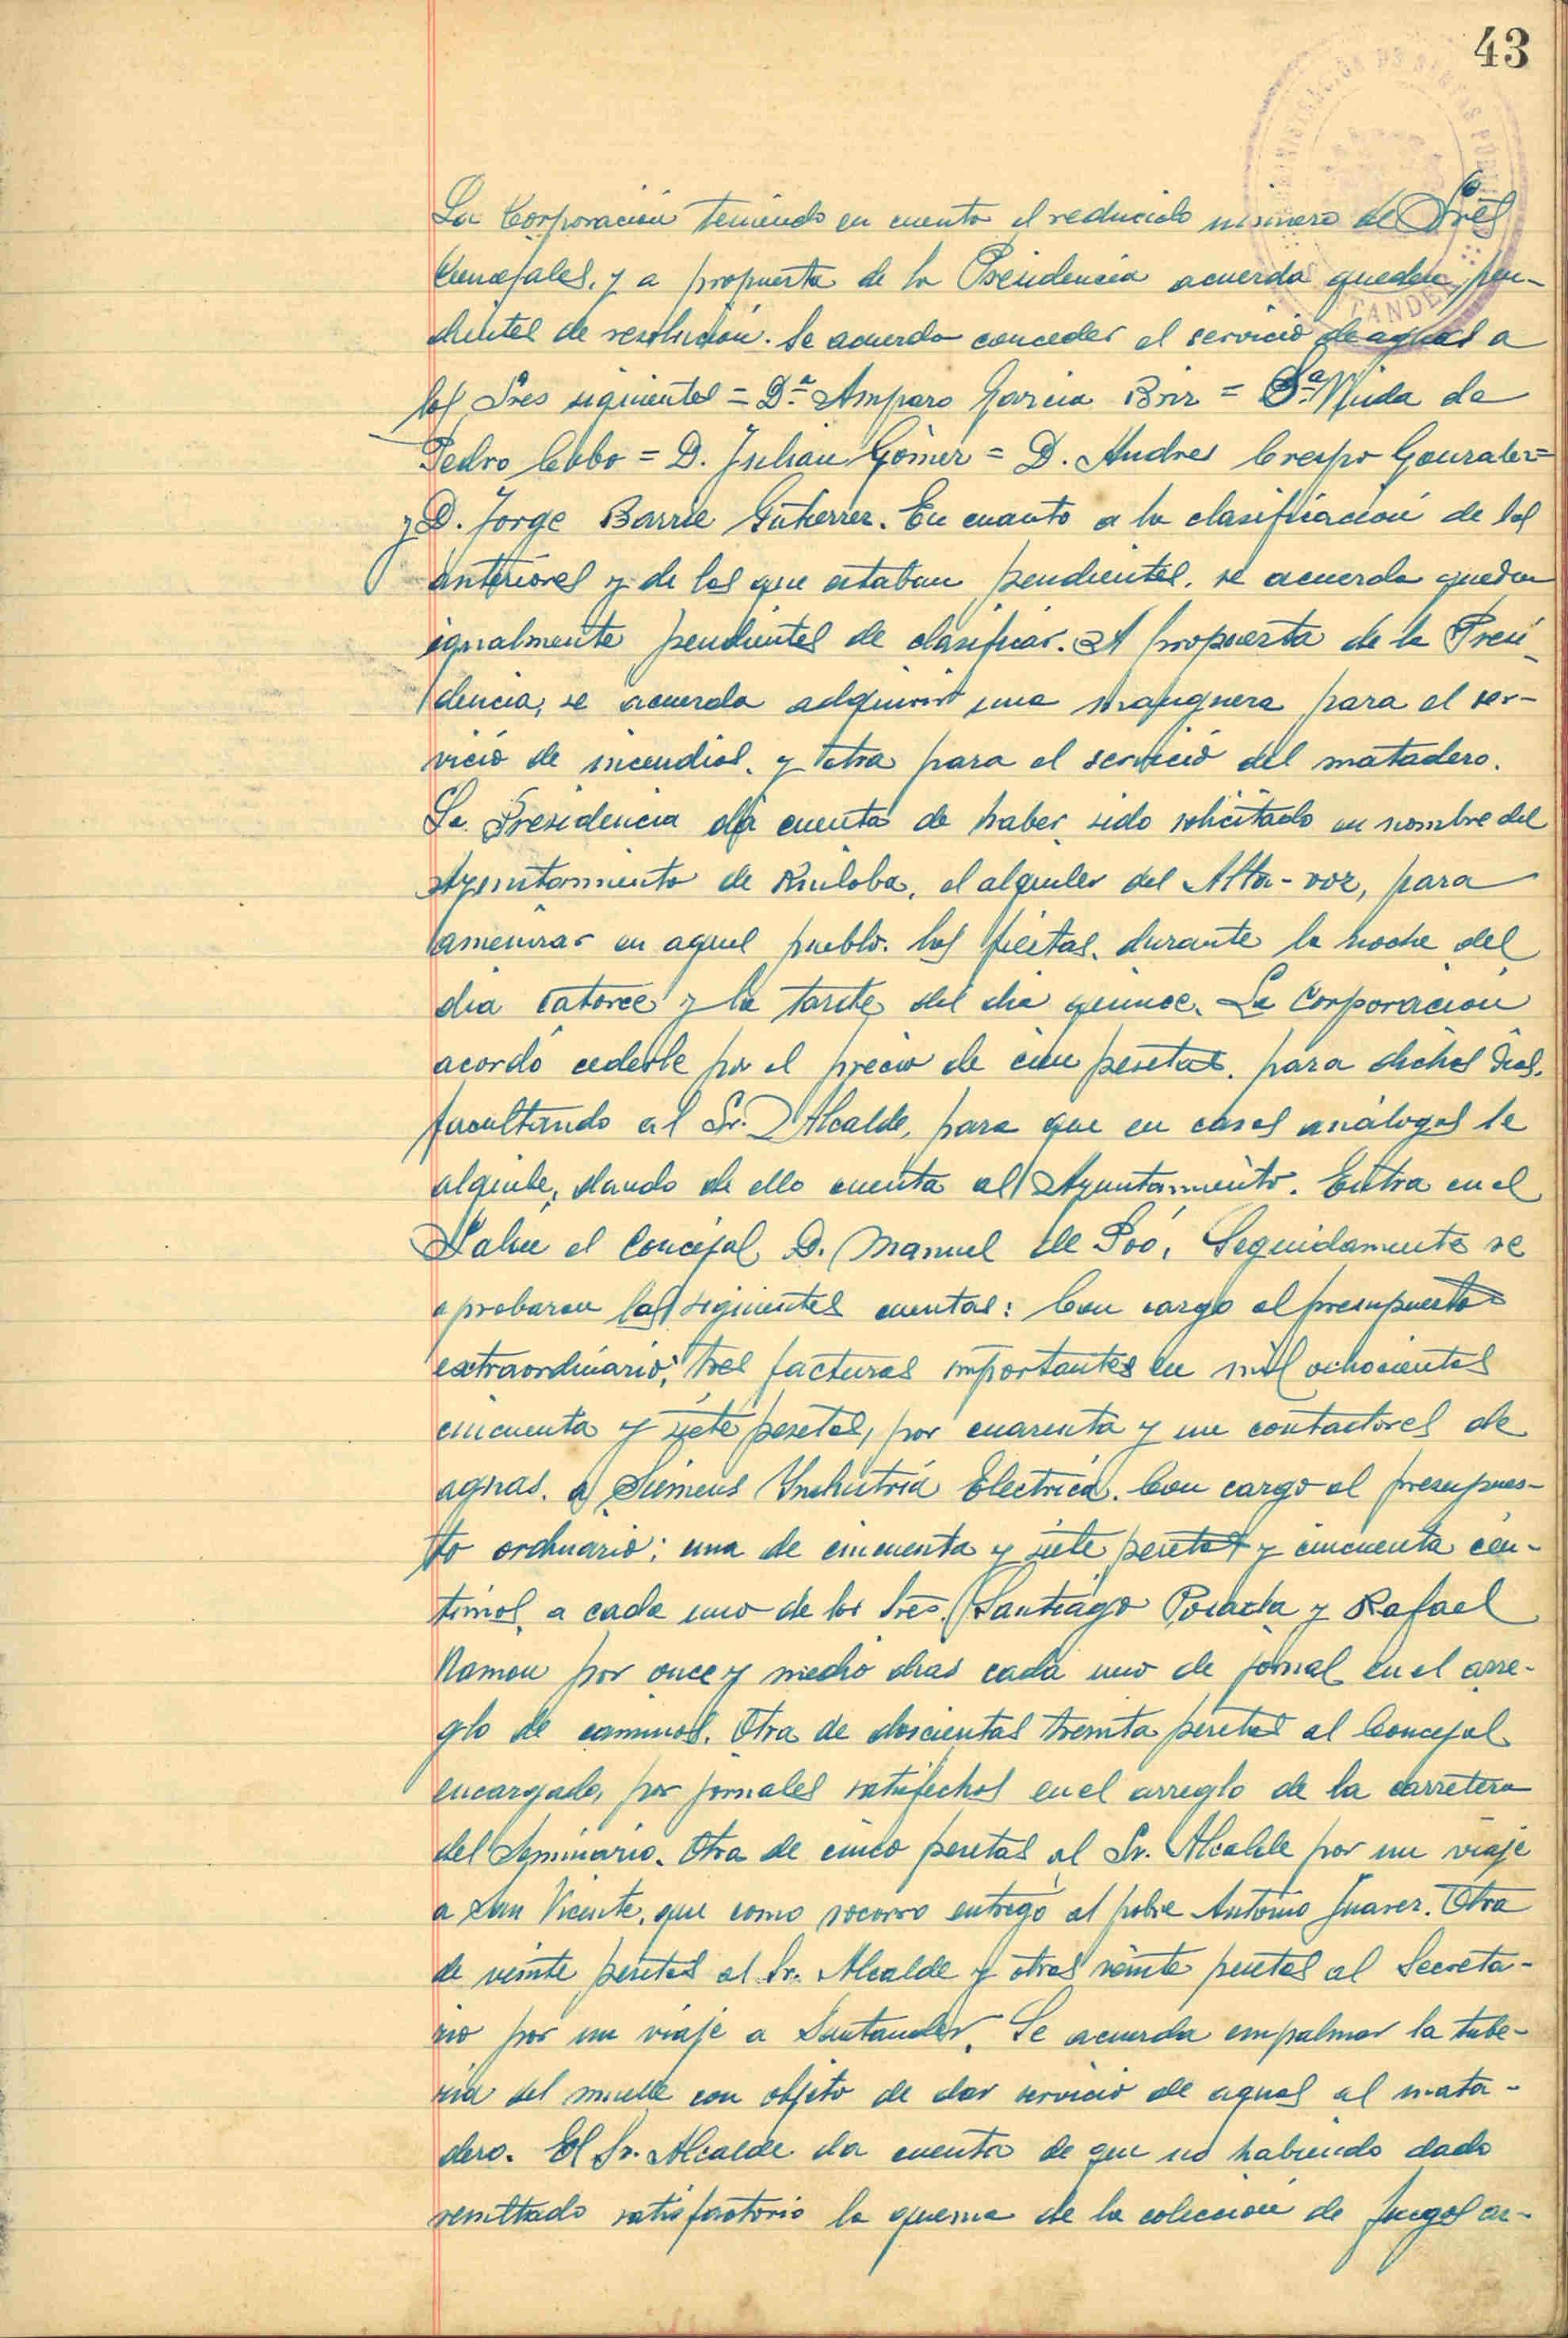 43
La Corporación teniendo en cuenta el reducido número de Sres
Concejales, y a propuesta de la Presidencia acuerda queden pen-
dientes de resolución. Se acuerda conceder el servicio de aguas a
los Sres siguientes = D.ª Amparo Garcia = S.ª Viuda de
Pedro Cobo = D. Julian Gómez = D. Andres Crespo Gonzalez =
y D. Jorge Barrie Gutierrez. En cuanto a la clasificación de los
anteriores y de los que estaban pendientes, se acuerda queden
igualmente pendientes de clasificar. A propuesta de la Presi-
dencia, se acuerda adquirir una manguera para el ser-
vicio de incendios, y otra para el servicio del matadero.
La Presidencia dá cuenta de haber sido solicitado en nombre del
Ayuntamiento de Ruiloba, el alquiler del Alta-voz, para
amenizar en aquel pueblo. las fiestas, durante la noche del
dia catorce y la tarde del dia quince. La Corporación
acordó cederle por el precio de cien pesetas, para dichos dias,
facultando al Sr. Alcalde, para que en casos análogos le
alquile, dando de ello cuenta al Ayuntamiento. Entra en el
Salon el Concejal D. Manuel de Poó. Seguidamente se
aprobaron las siguientes cuentas: Con cargo al presupuesto
extraordinario; tres facturas importantes en mil ochocientas
cincuenta y siete pesetas, por cuarenta y un contadores de
aguas, a Siemens Industria Electrica. Con cargo al presupues-
to ordinario: una de cincuenta y siete pesetas y cincuenta cén-
timos, a cada uno de los Sres. Santiago Posada y Rafael
Ramon por once y medio dias cada uno de jornal en el arre-
glo de caminos. Otra de doscientas treinta pesetas al Concejal
encargado, por jornales satisfechos en el arreglo de la carretera
del Seminario. Otra de cinco pesetas al Sr. Alcalde por un viaje
a San Vicente, que como socorro entregó al pobre Antonio Juarez. Otra
de veinte pesetas al Sr. Alcalde y otras veinte pesetas al Secreta-
rio por un viaje a Santander. Se acuerda empalmar la tube-
ria del muelle con objeto de dar servicio de aguas al mata-
dero. El Sr. Alcalde da cuenta de que no habiendo dado
resultado satisfactorio la quema de la colección de fuegos ar-